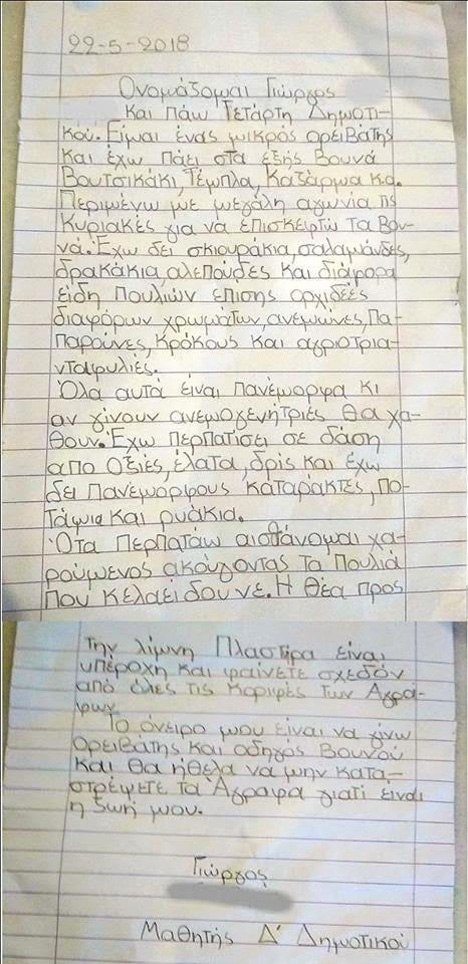 22-5-2018
Ονομάζομαι Γιώργος
και πάω Τετάρτη Δημοτι-
κού. Είμαι ένας μικρός ορειβάτης
και έχω πάει στα εξής βουνά
Βουτσικάκι, Τέμπλα, Καζάρμα κ.α.
Περιμένω με μεγάλη αγωνία τις
Κυριακές για να επισκεφτώ τα βου-
νά. Έχω δει σκιουράκια, σαλαμάνδες,
δρακάκια, αλεπούδες και διάφορα
είδη πουλιών επίσης ορχιδέες
διαφόρων χρωμάτων, ανεμώνες, πα-
παρούνες, κρόκους και αγριοτρια-
νταφυλιές.
Όλα αυτά είναι πανέμορφα κι
αν γίνουν ανεμογενήτριές θα χα-
θουν. Έχω περπατίσει σε δάση
απο οξιές, έλατα, δρίς και έχω
δει πανέμορφους καταράκτές, πο-
τάμια και ρυάκια.
Ότα περπατάω αισθάνομαι χα-
ρούμενος ακούγοντας τα πουλιά
που κελαείδουνε. Η θέα προς
την λίμνη Πλαστίρα είναι
υπέροχη και φαίνετε σχεδόν
από όλες τις κορυφές των Αγρά-
φων.
Το όνειρο μου είναι να γίνω
ορειβάτης και οδηγός βουνού
και θα ήθελα να μην κατα-
στρέψετε τα Άγραφα γιατί είναι
η ζωή μου.
Γιώργος
Μαθητής Δ' Δημοτικού